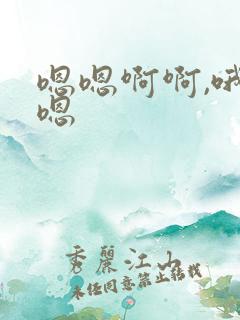 嗯嗯啊啊,哦
嗯
秀麗江山
未经同意禁止转载